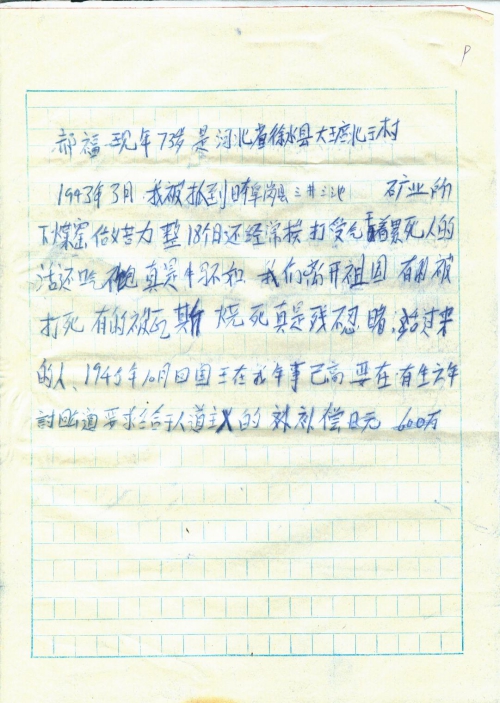 P
郝福 现年73岁 是河北省徐水县大王庄北王村
1943年3月 我被抓到日本 三井三池 矿业所
下煤窑 做苦力 整18个月还经常挨打受气 累死人的
活还吃不饱真是牛马不如 我们离开祖国 有的被
打死 有的被瓦斯 烧死真是残忍 活过来
的人、1945年10月回国 现在我年事已高 要在有生之年
讨回 道 要求给予人道主义的 补偿日元 600万